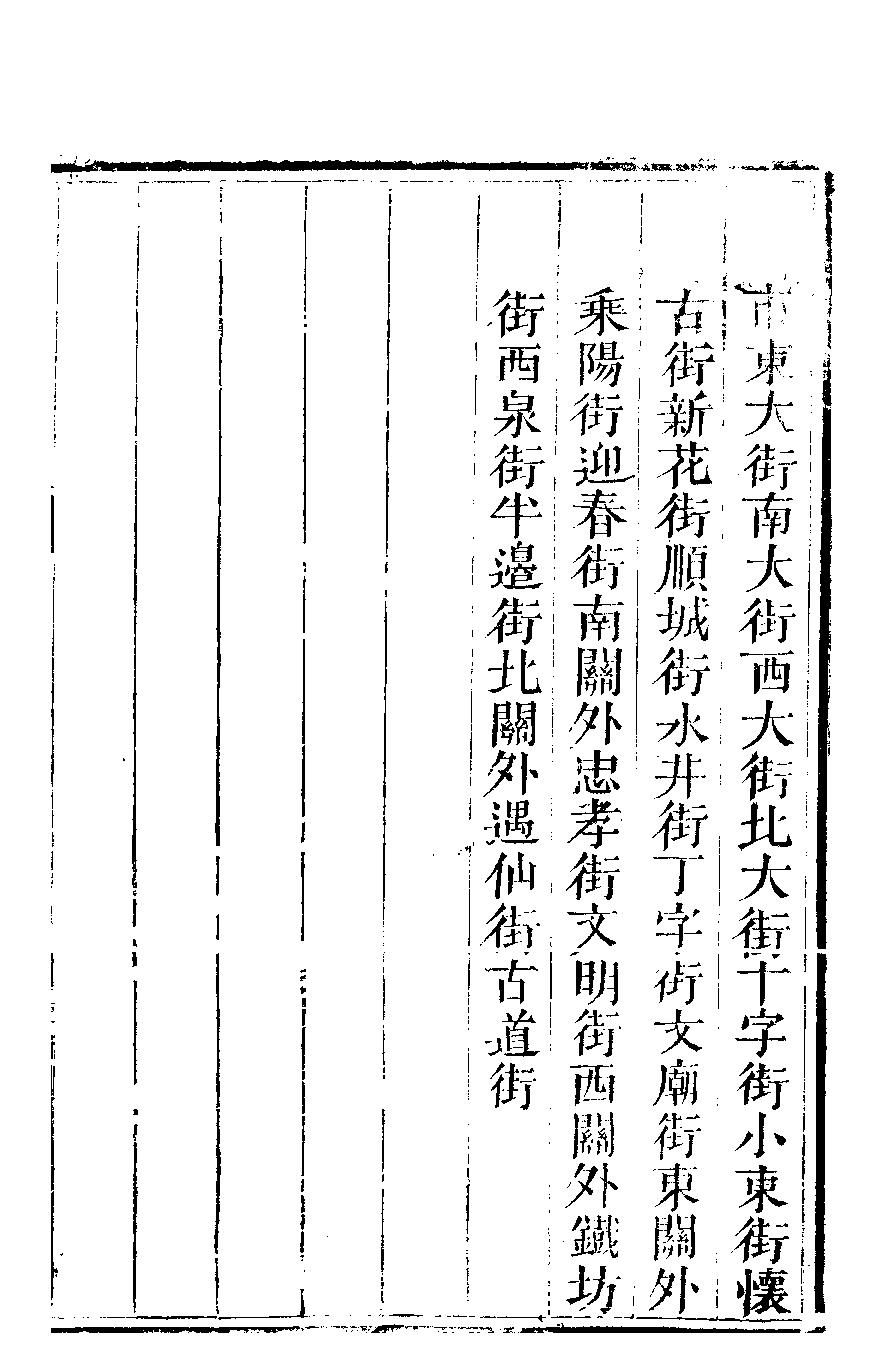 市東大街南大街西大街北大街十字街小東街懷
古街新花街順城街水井街丁字街文廟街東關外
乘陽街迎春街南關外忠孝街文明街西關外鐵坊
街西泉街半邉街北關外遇仙街古道街